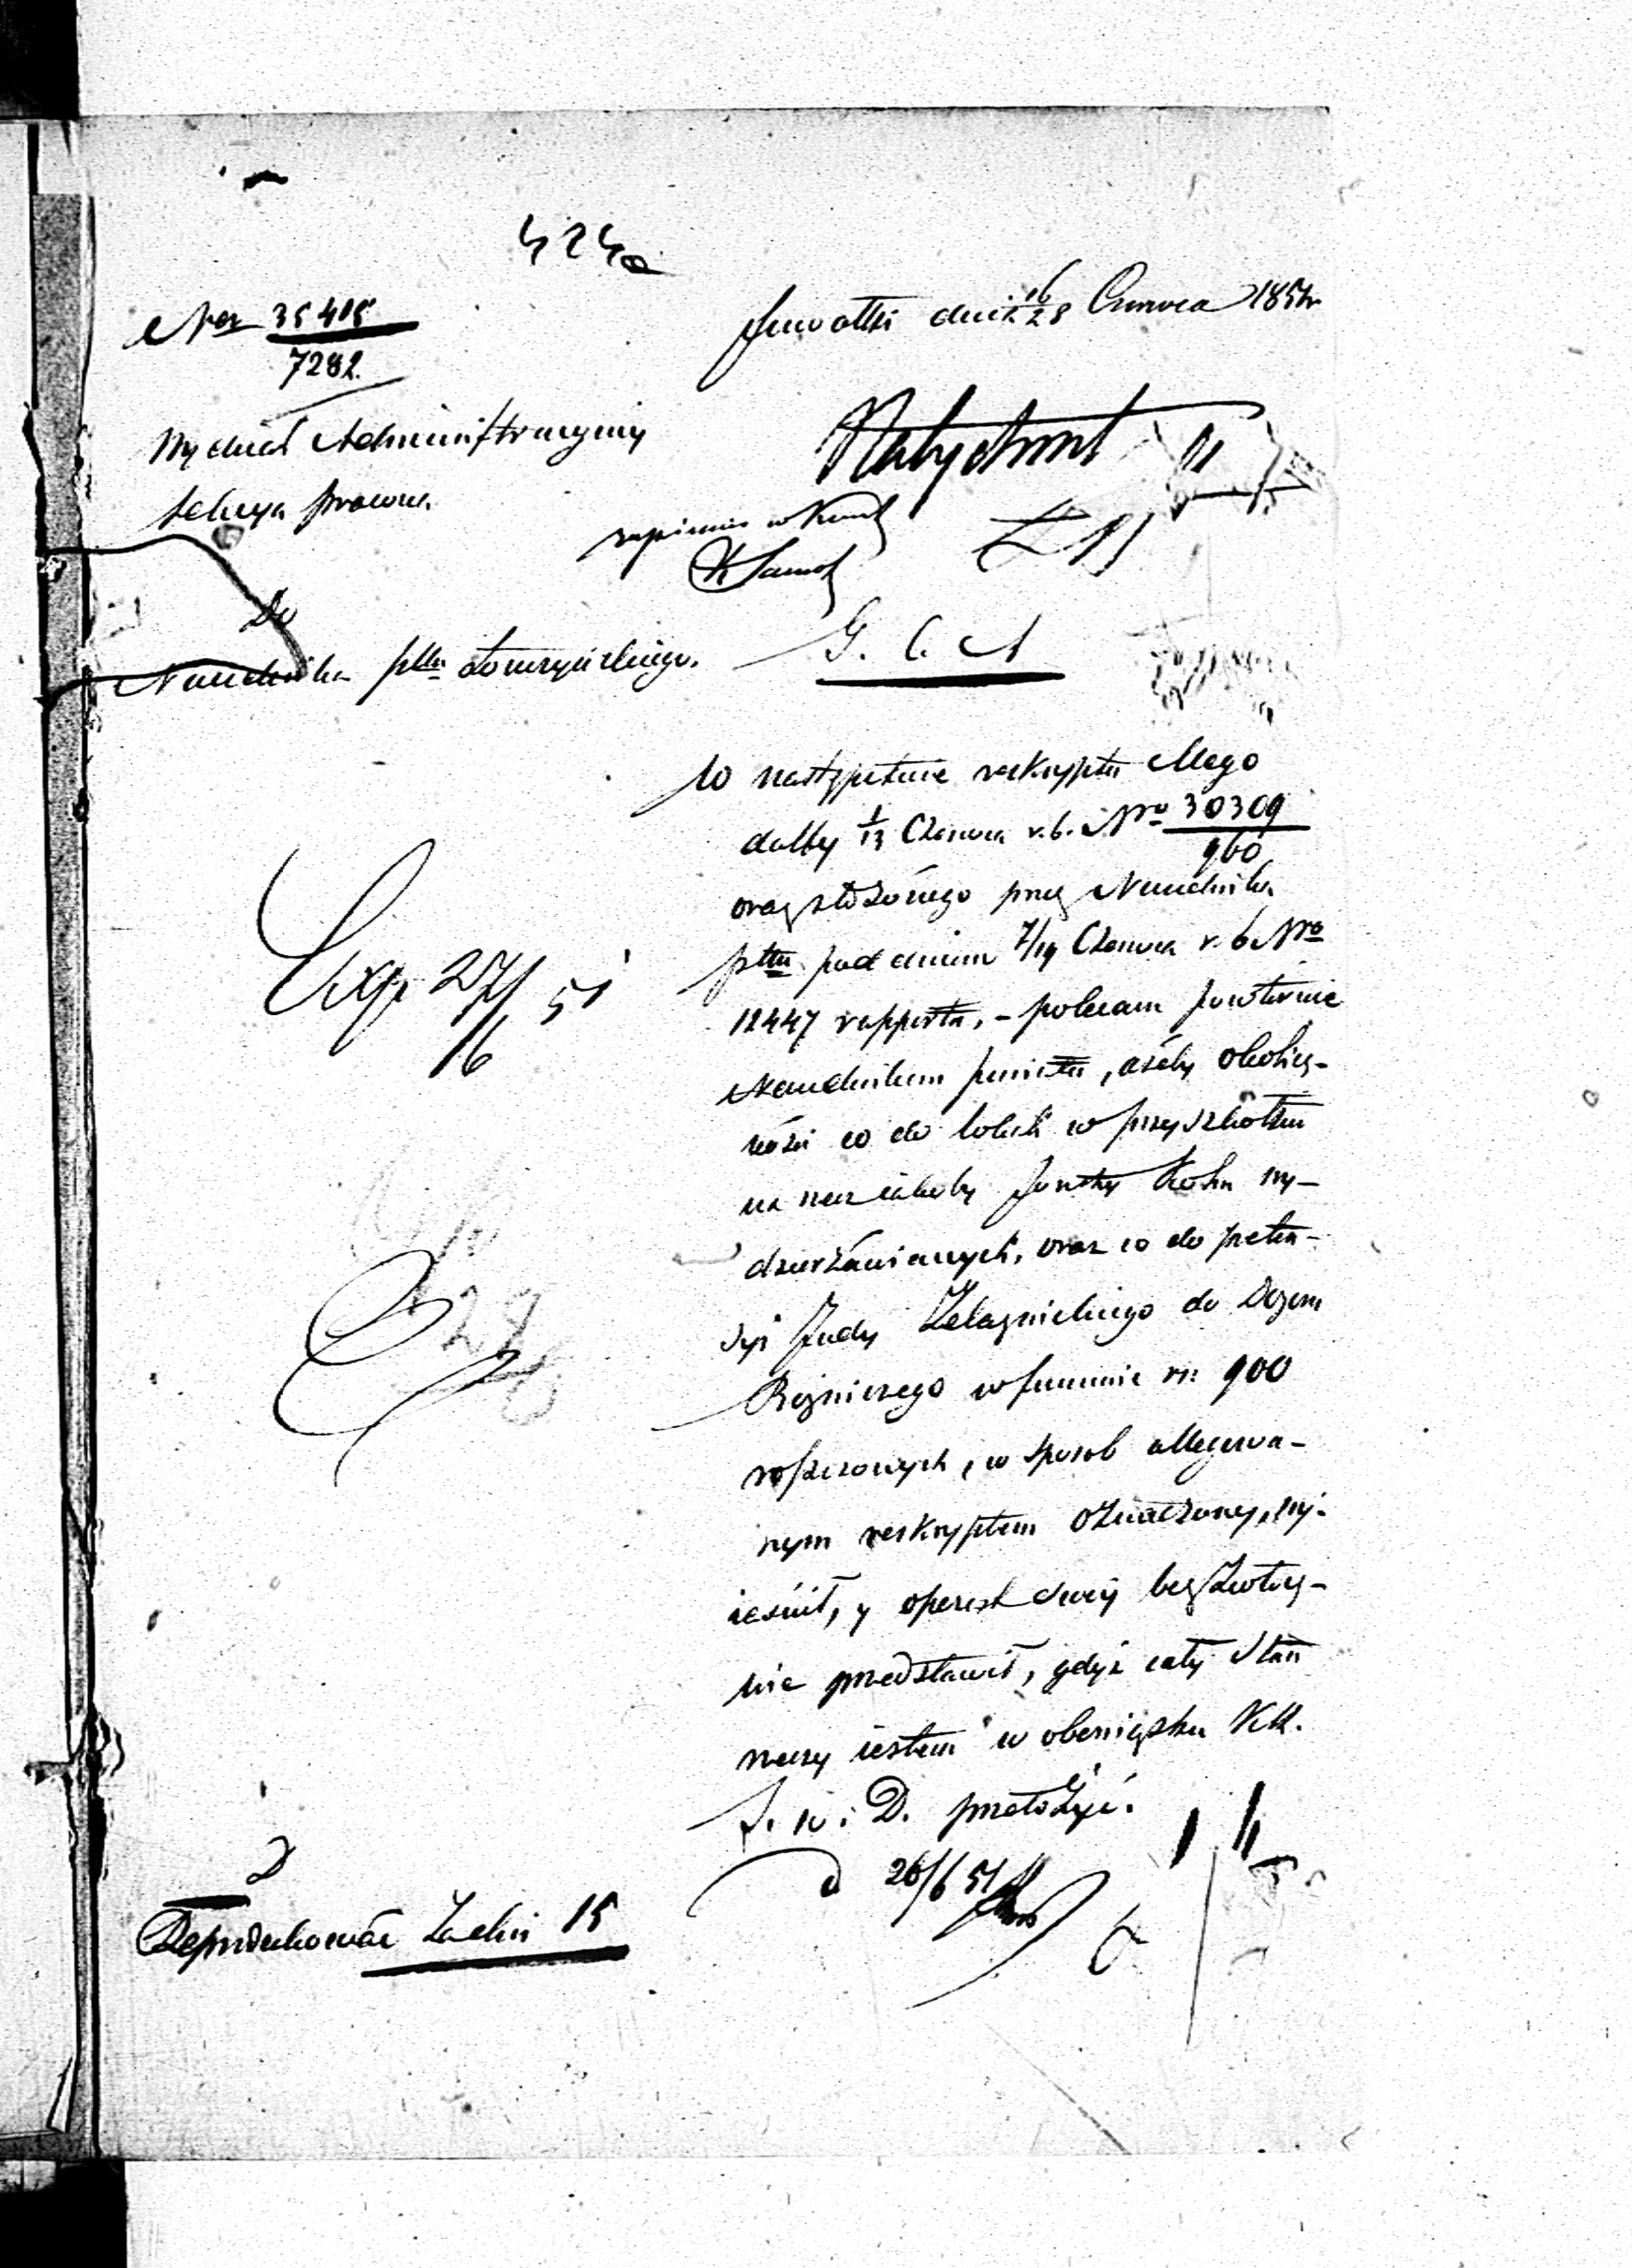 424a
Nro 35415
7282.
Suwałki dnia 16/28 Czerwca 1851 r
Wydział Administracyjny
Natychmt
Sekcya prawna
Do
Naczelnika pttu Łomżyńskiego.
G. C. A
W następstwie reskryptu Mego
datty 1/13 Czerwca r. b. Nro 30309
960
oraz złożonego przez Naczelnika
pttu pod dniem 7/19 Czerwca r. b. Nro
12447 rapportu, – polecam powtórnie
Naczelnikowi powiatu, ażeby okolicz-
ności co do w przyszłości
na rzecz jakoby Kohn wy-
dzierżawianych, oraz co do preten-
syi Judy Żelaźnickiego do Dozoru
Bóżniczego w summie rs: 900
roszczonych, w sposób allegowa-
nym reskryptem oznaczony, wy-
jaśnił, y operat swój bezzwłocz-
nie przedstawił, gdyż cały stan
rzeczy jestem w obowiązku KR.
S. W. i D. przełożyć.
Exp 27/6 51
d 26/6 51
Reprodukować Za dni 15